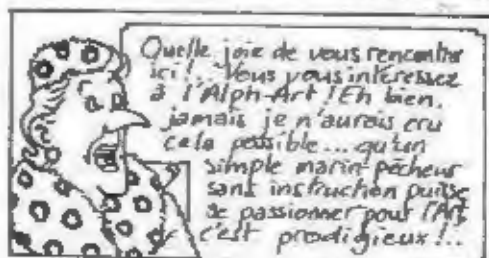 Quelle joie de vous rencontrer
ici !.. Vous vous intéressez
à l'Alph-Art ! Eh bien,
jamais je n'aurais cru
cela possible... qu'un
simple marin-pêcheur
sans instruction puisse
se passionner pour l'Art
c'est prodigieux !..